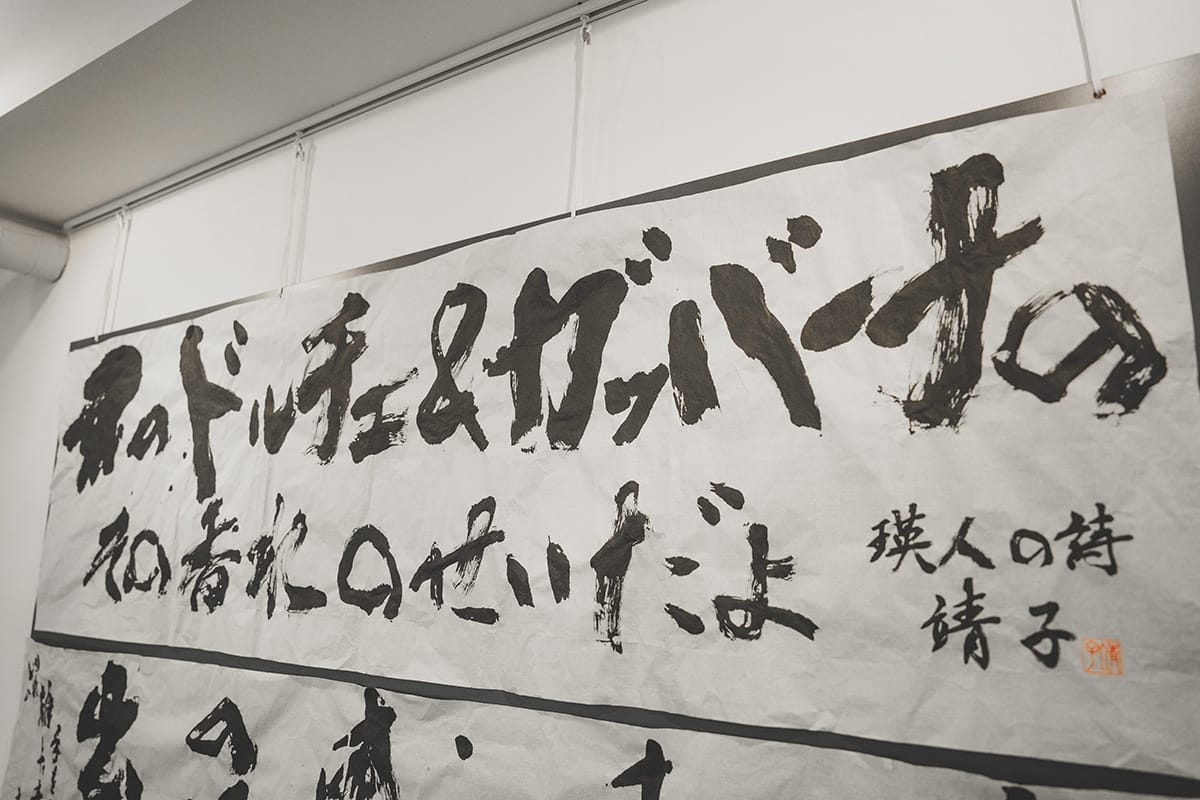 君のドルチェ&ガッバーナの
その香水のせいだよ
瑛人の詩
靖子